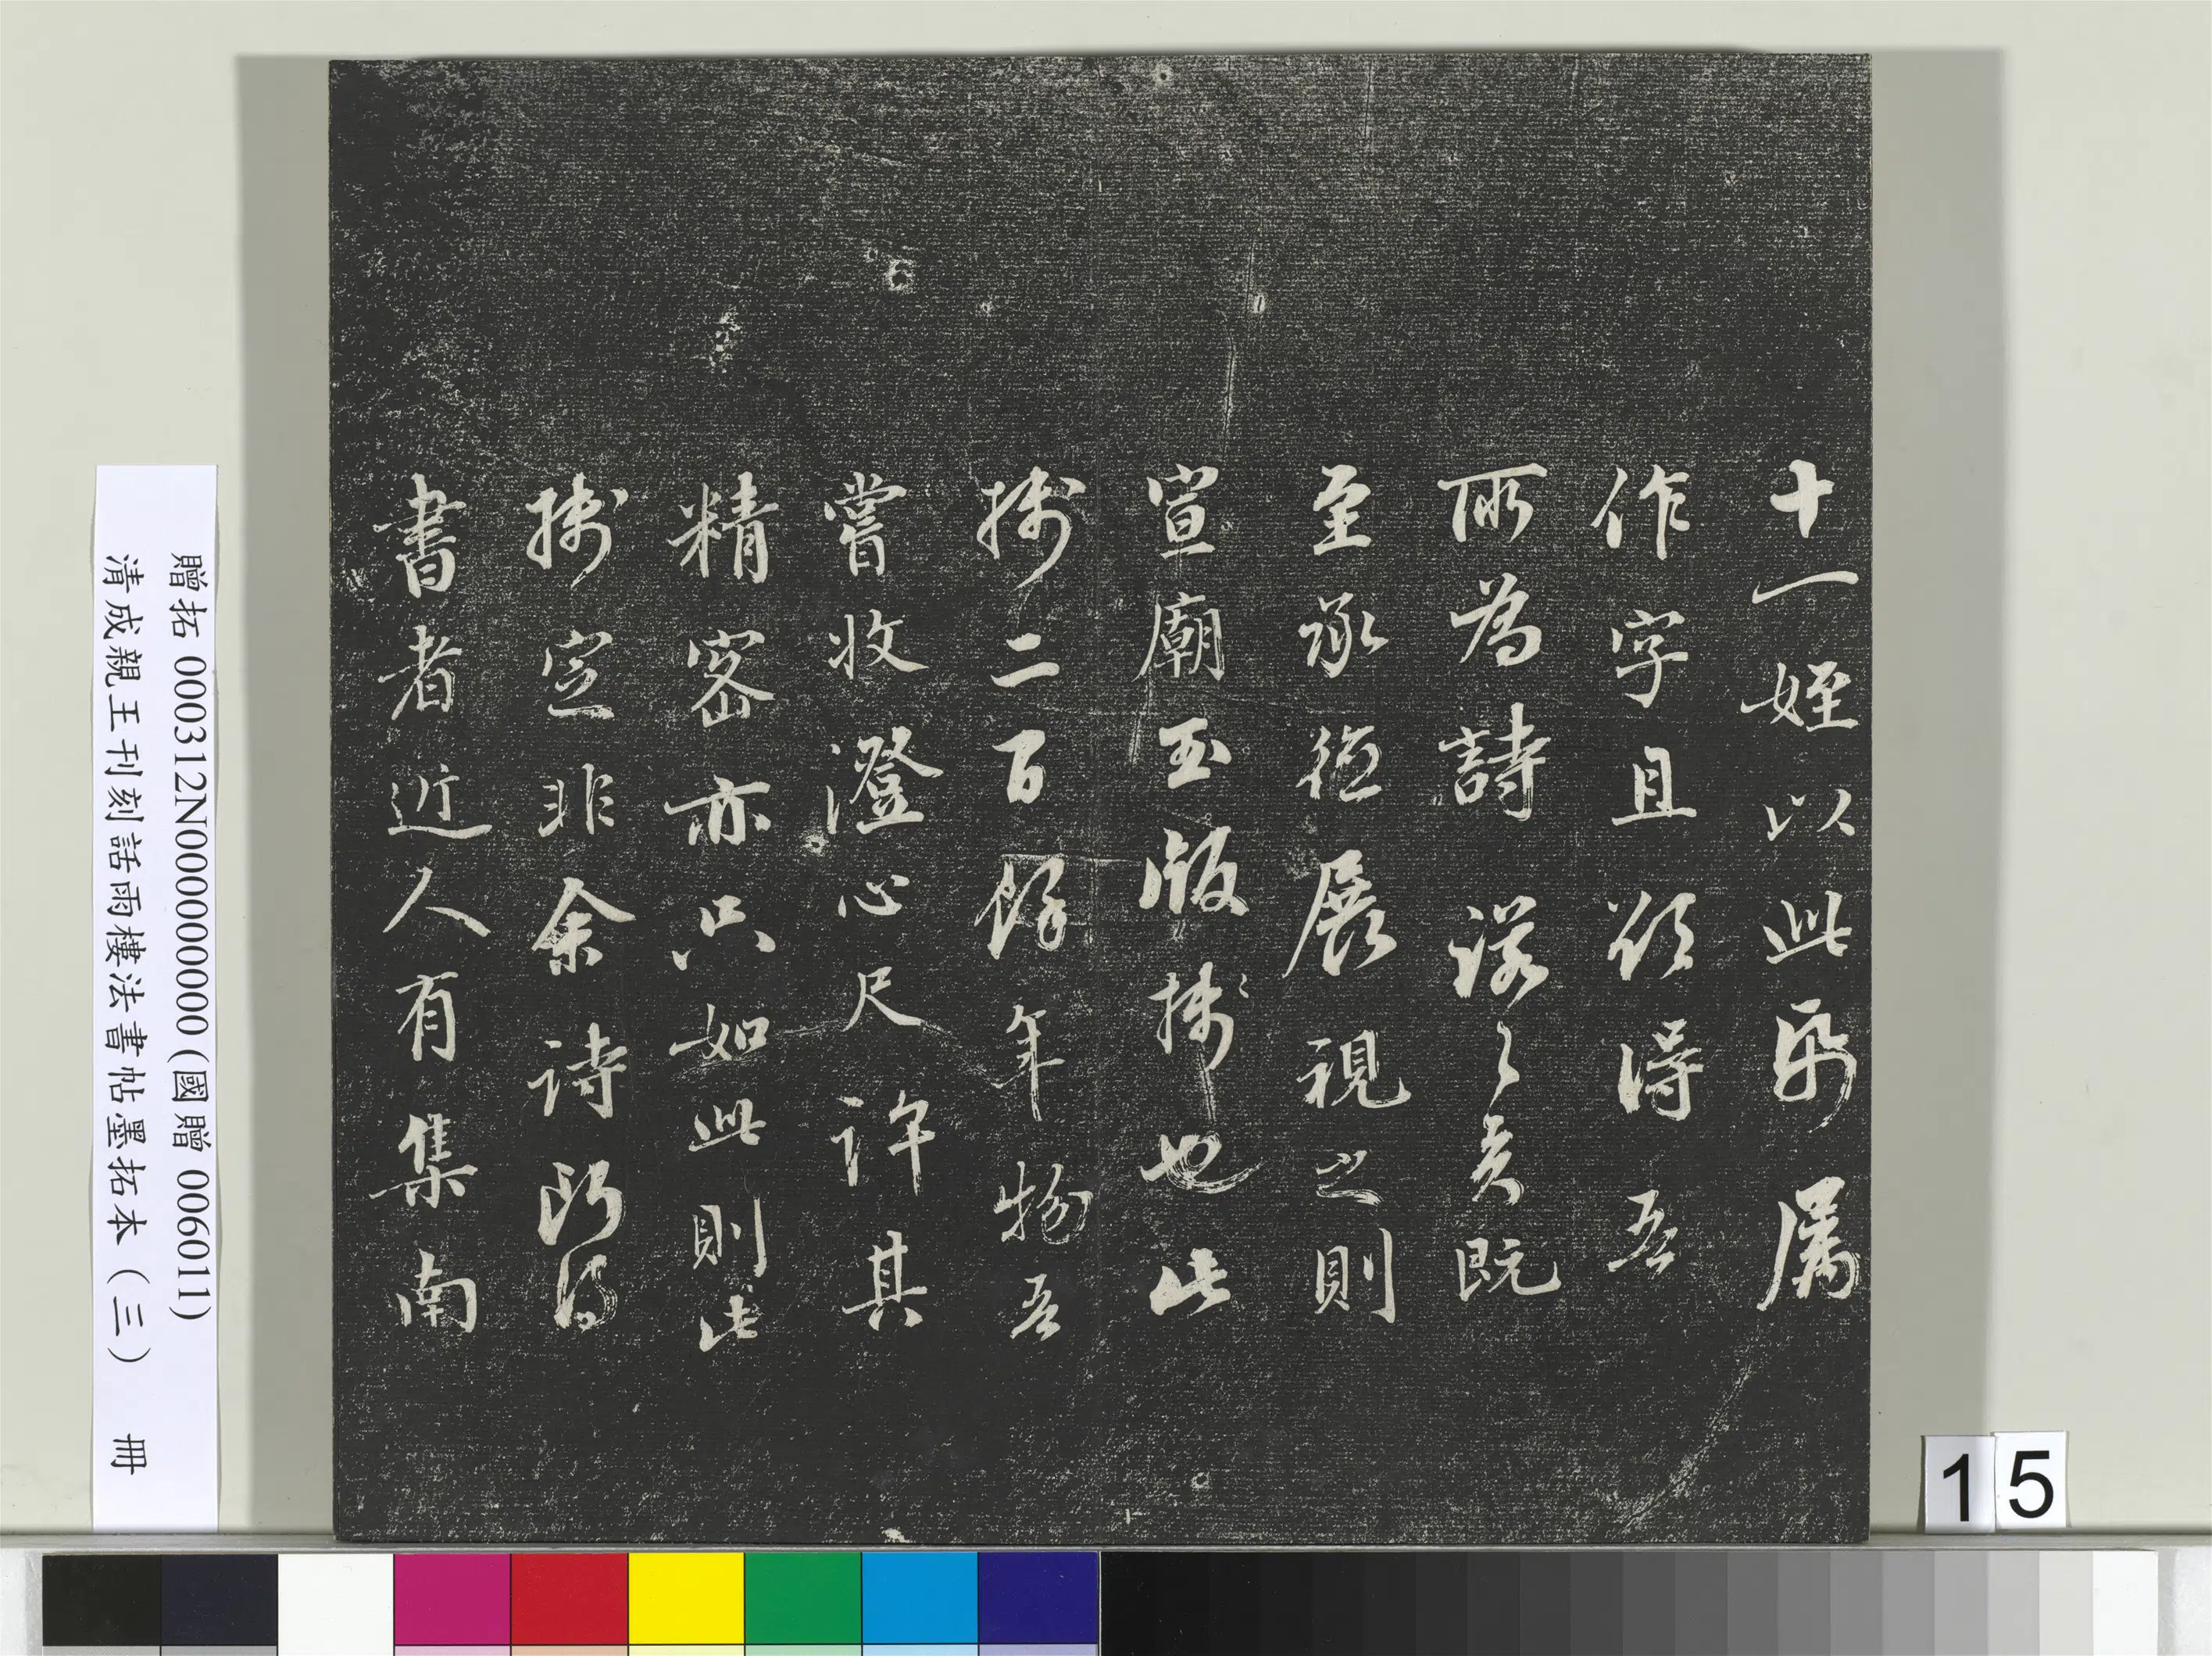 十一姪以此帋属
作字且欲得吾
所為詩諾之矣既
至承德展視之則
宣廟玉版牋也此
牋二百餘年物吾
嘗收澄心尺許其
精密亦只如此則此
牋定非余詩所得
書者近人有集南
贈拓 000312N000000000(國贈 006011)
清成親王刊刻話雨樓法書帖墨拓本（三） 冊
15